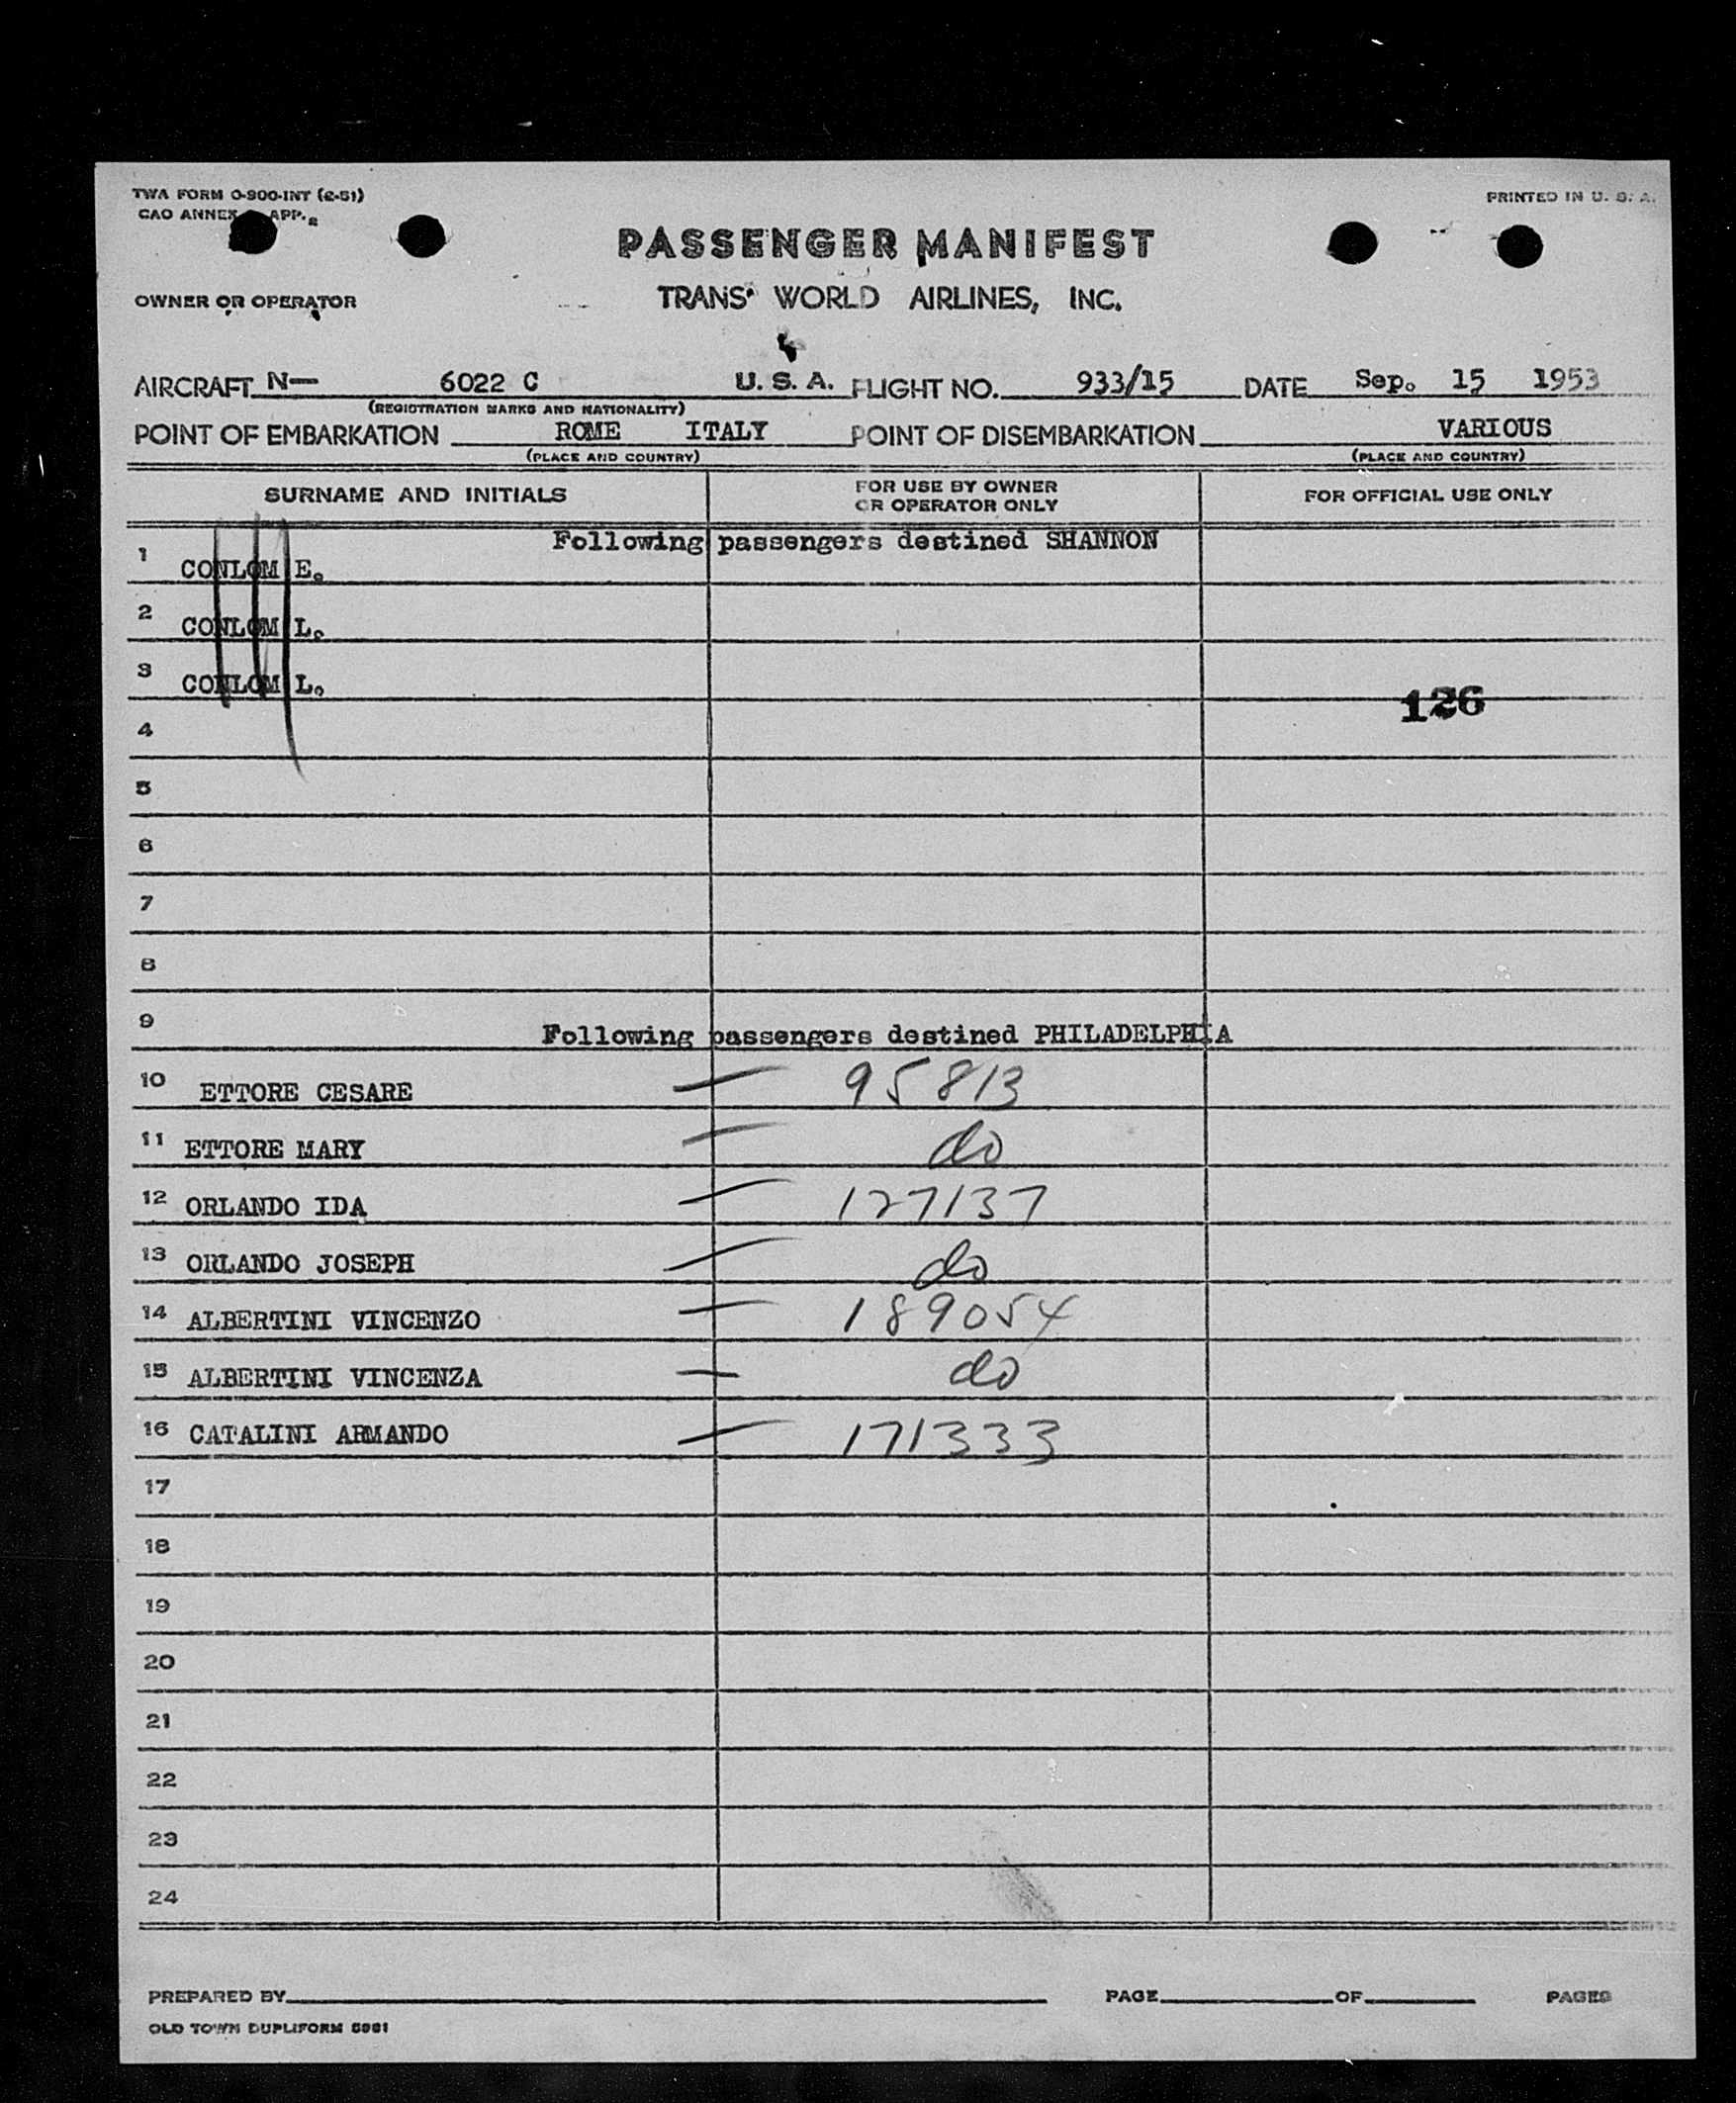 TWA FORM O-900-INT (2-51)
PRINTED IN U. S. A.
CAO ANNEX APP. 2
PASSENGER MANIFEST
OWNER OR OPERATOR
TRANS WORLD AIRLINES, INC.
AIRCRAFT N— 6022 C U. S. A. FLIGHT NO. 933/15 DATE Sep. 15 1953
(REGISTRATION MARKS AND NATIONALITY)
POINT OF EMBARKATION ROME ITALY POINT OF DISEMBARKATION VARIOUS
(PLACE AND COUNTRY) (PLACE AND COUNTRY)
SURNAME AND INITIALS
FOR USE BY OWNER
OR OPERATOR ONLY
FOR OFFICIAL USE ONLY
Following passengers destined SHANNON
1 CONLOM E.
2 CONLOM L.
3 CONLOM L.
126
4
5
6
7
8
9
Following passengers destined PHILADELPHIA
10 ETTORE CESARE — 95813
11 ETTORE MARY — do
12 ORLANDO IDA — 127137
13 ORLANDO JOSEPH — do
14 ALBERTINI VINCENZO — 189054
15 ALBERTINI VINCENZA — do
16 CATALINI ARMANDO — 171333
17
18
19
20
21
22
23
24
PREPARED BY PAGE OF PAGES
OLD TOWN DUPLIFORM 5981